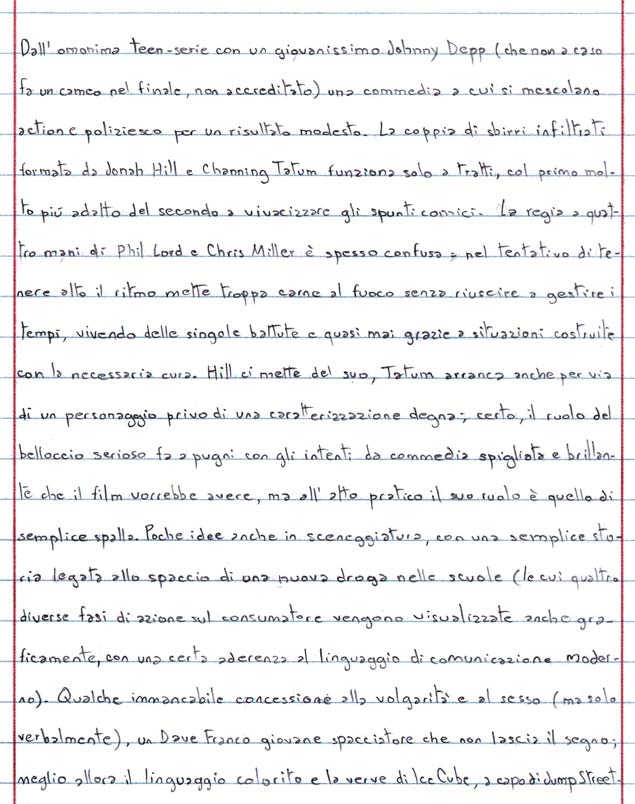 Dall'omonima teen-serie con un giovanissimo Johnny Depp (che non a caso
fa un cameo nel finale, non accreditato) una commedia a cui si mescolano
action e poliziesco per un risultato modesto. La coppia di sbirri infiltrati
formata da Jonah Hill e Channing Tatum funziona solo a tratti, col primo mol-
to più adatto del secondo a vivacizzare gli spunti comici. La regia a quat-
tro mani di Phil Lord e Chris Miller è spesso confusa: nel tentativo di te-
nere alto il ritmo mette troppa carne al fuoco senza riuscire a gestire i
tempi, vivendo delle singole battute e quasi mai grazie a situazioni costruite
con la necessaria cura. Hill ci mette del suo, Tatum arranca anche per via
di un personaggio privo di una caratterizzazione degna; certo, il ruolo del
belloccio serioso fa a pugni con gli intenti da commedia spigliata e brillan-
te che il film vorrebbe avere, ma all'atto pratico il suo ruolo è quello di
semplice spalla. Poche idee anche in sceneggiatura, con una semplice sto-
ria legata allo spaccio di una nuova droga nelle scuole (le cui quattro
diverse fasi di azione sul consumatore vengono visualizzate anche gra-
ficamente, con una certa aderenza al linguaggio di comunicazione moder-
no). Qualche immancabile concessione alla volgarità e al sesso (ma solo
verbalmente), un Dave Franco giovane spacciatore che non lascia il segno;
meglio allora il linguaggio colorito e la verve di Ice Cube, a capo di Jump Street.